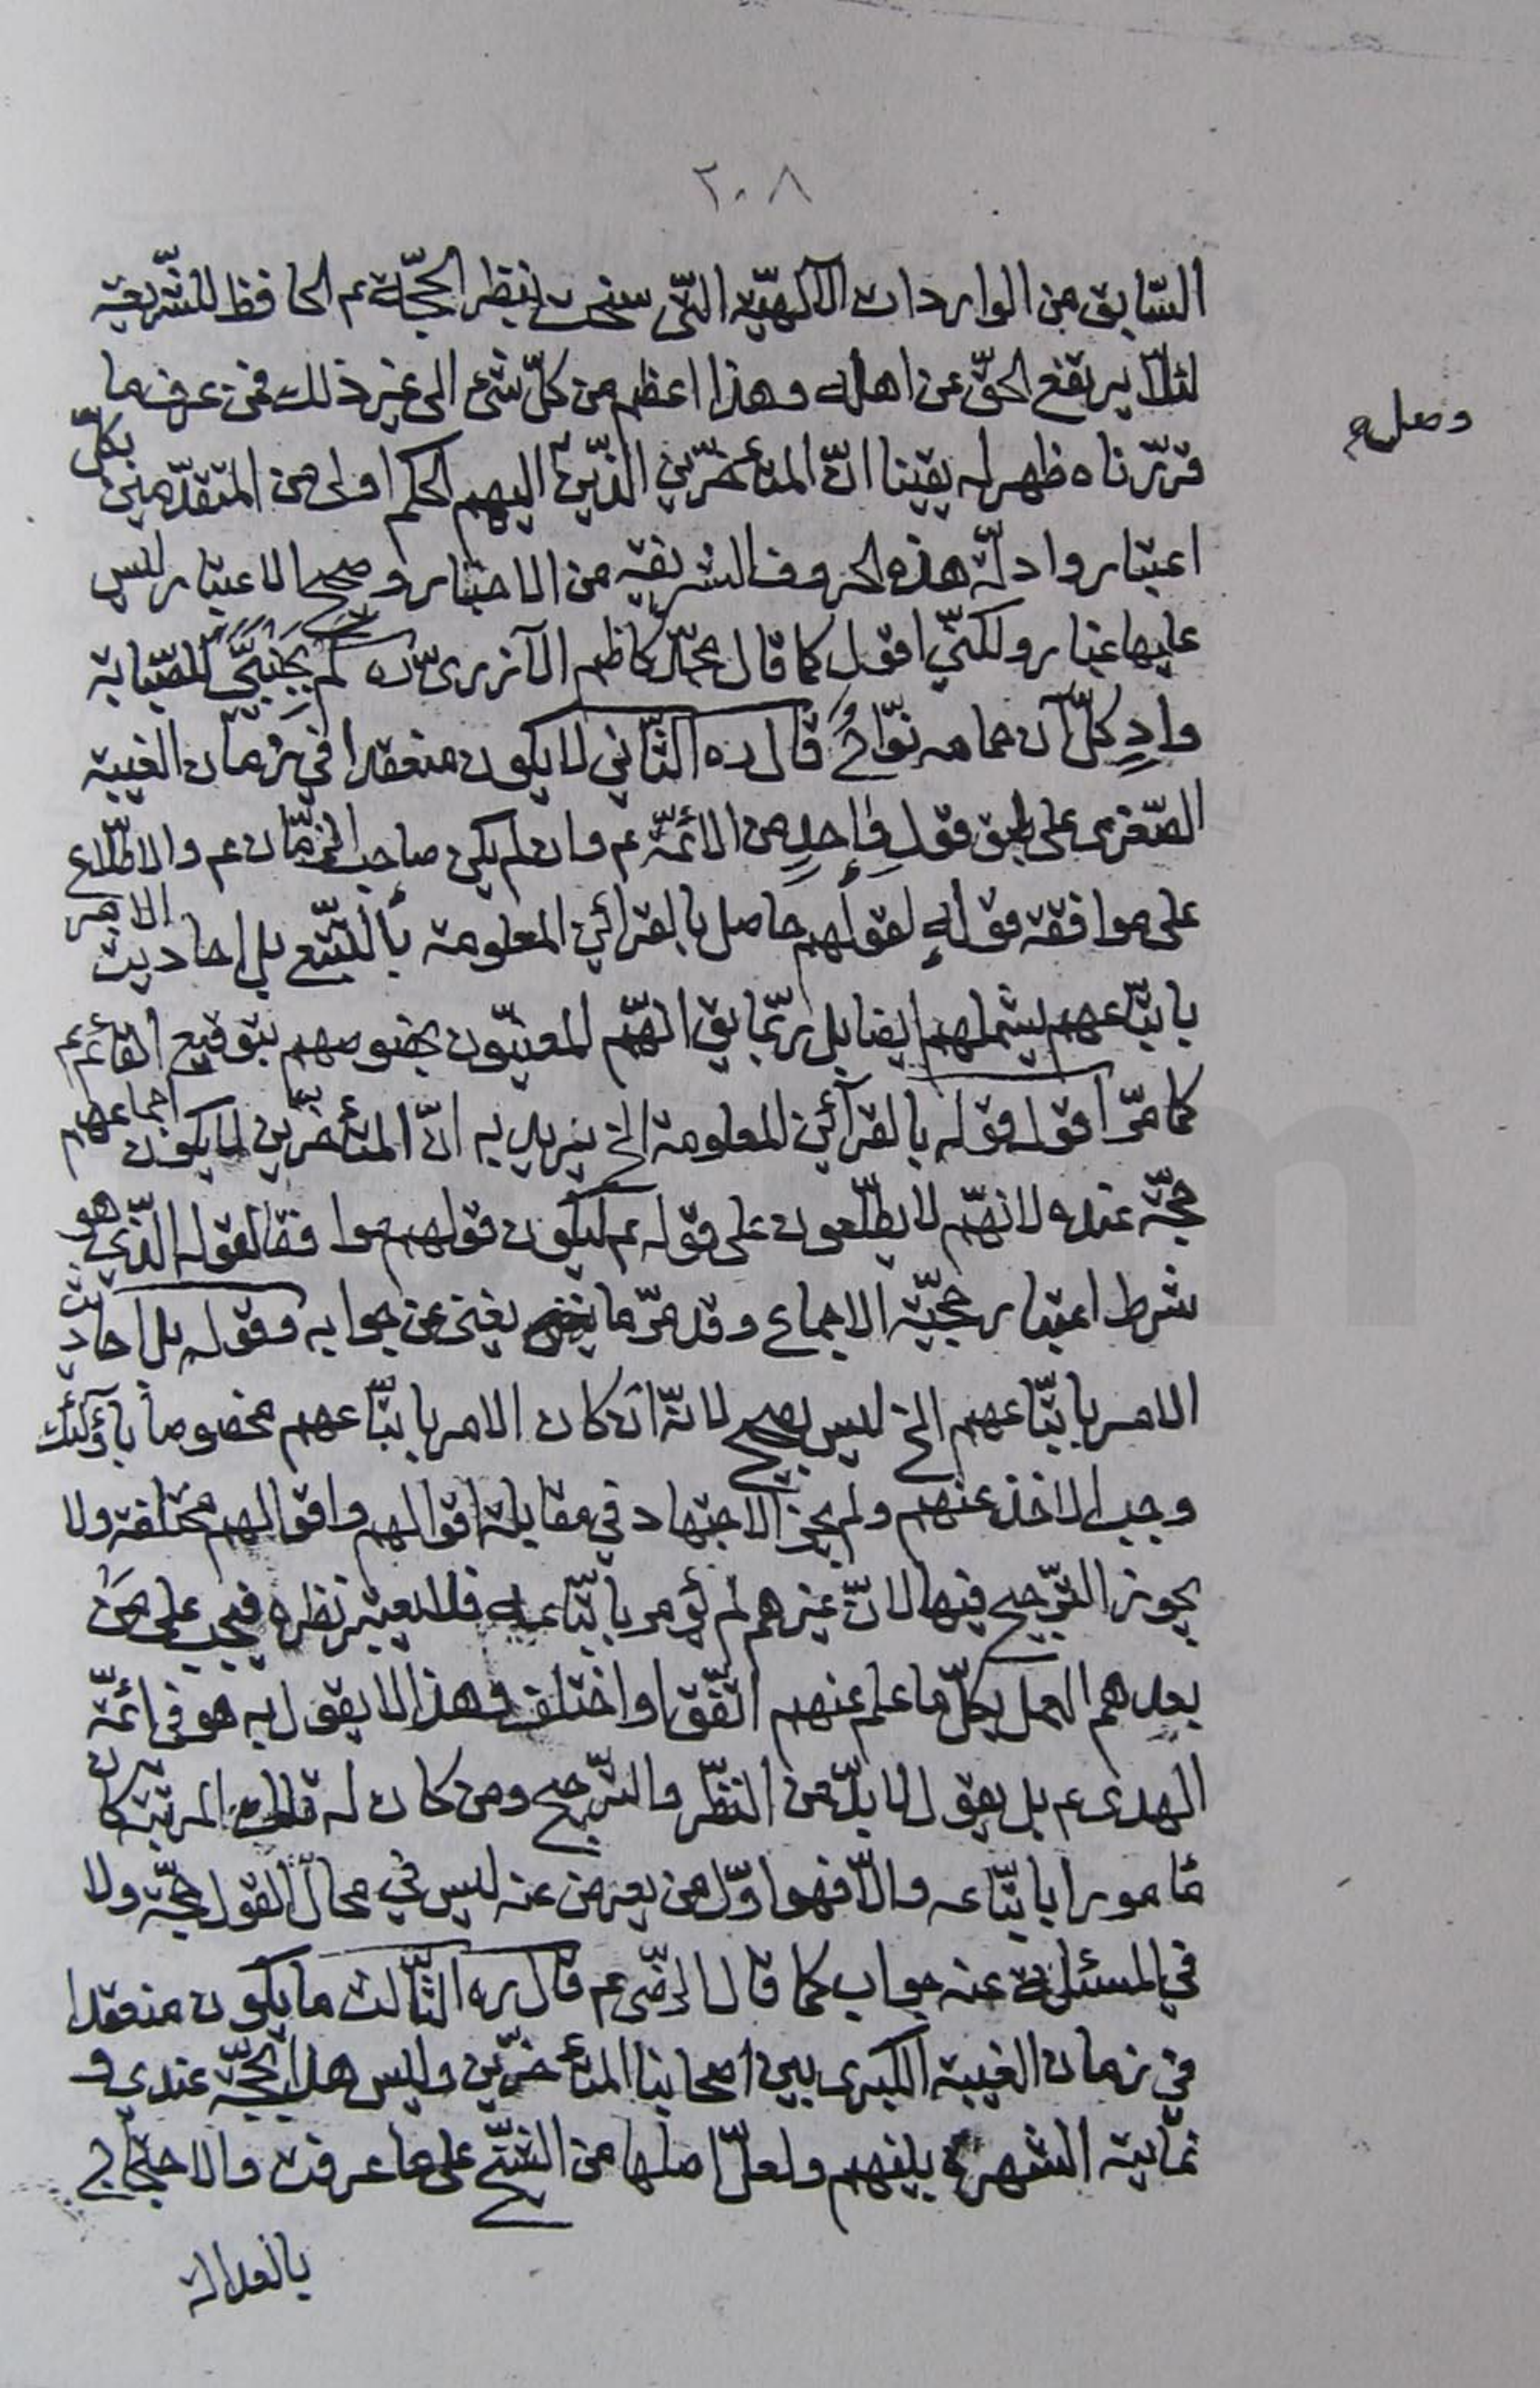 ٢٠٨
السّابق من الواردات الالهيّه الّتى سنحت بنظر الحجّة عم الحافظ للشّريعة
لئلّا يرتفع الحقّ عن اهله وهذا اعظم من كلّ شئ الى غير ذلك فمن عرف ما
وصل
قرّرناه ظهر له يقينا انّ المتأخّرين الذّين اليهم الحكم اولى من المتقدّمين بكلّ
اعتبار وادلّة هذه الحروف الشريفة من الاخبار وصحيح الاعتبار ليس
عليها غبار ولكنّى اقول كما قال محمّد كاظم الآزرى ره كم بجنبىّ للصّبابة
وادٍ كلّ آن حمامه نوّاحُ قال ره الثّانى لا يكون منعقدا فى زمان الغيبة
الصّغرى على طبق قول واحدٍ من الائمّة عم وان لم يكن صاحب الزّمان عم والاطّلاع
على موافقة قوله لقولهم حاصل بالقرائن المعلومة بالتّتبّع بل احاديث الامر
باتّباعهم يشملهم ايضا بل ربّما يق انّهم المعنيّون بخصوصهم بتوقيع القائم عم
كما مرّ اقول قوله بالقرآئن المعلومة الخ يريد به انّ المتأخّرين لا يكون اجماعهم
حجّة عنده لانهّم لا يطّلعون على قوله عم ليكون قولهم موا فقا لقوله الذّى هو
شرط اعتبار حجيّة الاجماع وقد مرّ ما يغنى عن جوابه وقوله بل احاديث
الامر باتّباعهم الخ ليس بصحيح لانّه ان كان الامر باتّباعهم مخصوصاً باؤلئك
وجب الاخذ عنهم ولم يجز الاجتهاد فى مقابلة اقوالهم واقوالهم مختلفة ولا
يجوز التّرجيح فيها لانّ غيرهم لم يؤمر باتّباعه فلا يعتبر نظره فيجب على من
بعدهم العمل بكلّ ما علم عنهم اتّفق او اختلف وهذا لا يقول به هو فى ائمّة
الهدى عم بل يقول لا بدّ من النّظر والترّجيح ومن كان له تلك المرتبة كان
مامورا باتّباعه والّا فهو اوّل من يعرض عنه ليس فى محالّ القول حجّة ولا
فى المسئلة عنه جواب كما قال الرّضى عم قال ره الثّالث ما يكون منعقدا
فى زمان الغيبة الكبرى بين اصحابنا المتأخرّين وليس هذا بحجّة عندى و
نهايته الشهرة بينهم ولعلّ اصلها من الشيّخ على ما عرفت والاحتجاج
بالعدالة